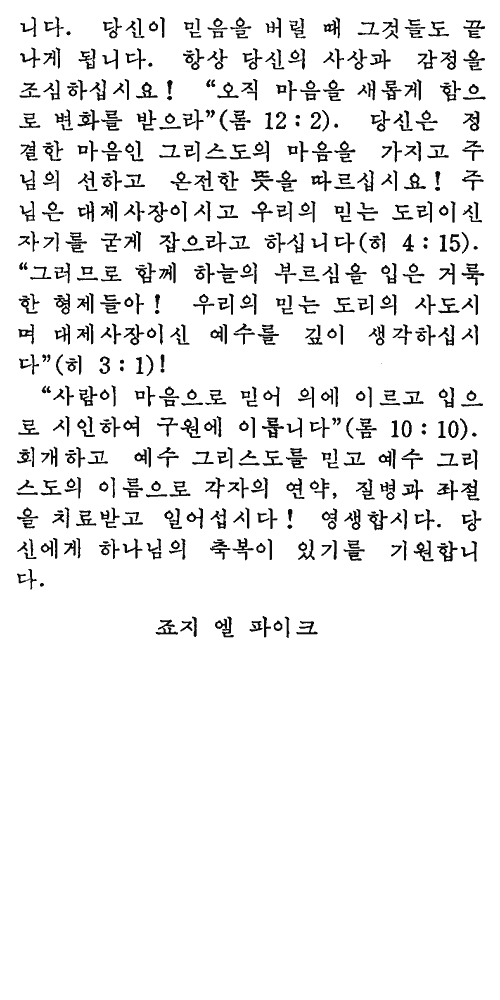 니다. 당신이 믿음을 버릴 때 그것들도 끝
나게 됩니다. 항상 당신의 사상과 감정을
조심하십시요! “오직 마음을 새롭게 함으
로 변화를 받으라”(롬 12:2). 당신은 정
결한 마음인 그리스도의 마음을 가지고 주
님의 선하고 온전한 뜻을 따르십시요! 주
님은 대제사장이시고 우리의 믿는 도리이신
자기를 굳게 잡으라고 하십니다(히 4:15).
“그러므로 함께 하늘의 부르심을 입은 거룩
한 형제들아! 우리의 믿는 도리의 사도시
며 대제사장이신 예수를 깊이 생각하십시
다”(히 3:1)!
“사람이 마음으로 믿어 의에 이르고 입으
로 시인하여 구원에 이릅니다”(롬 10:10).
회개하고 예수 그리스도를 믿고 예수 그리
스도의 이름으로 각자의 연약, 질병과 좌절
을 치료받고 일어섭시다! 영생합시다. 당
신에게 하나님의 축복이 있기를 기원합니
다.
죠지 엘 파이크